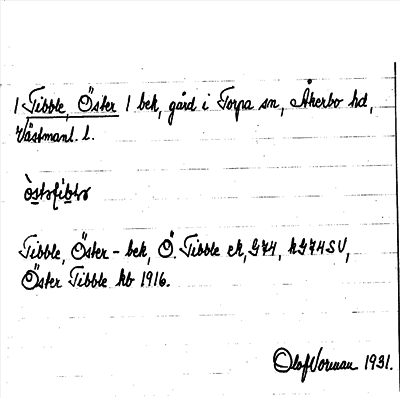 1 Tibble, Öster 1 bek, gård i Torpa sn, Åkerbo hd,
Västmanl. l.
Tibble, Öster - bek, Ö. Tibble ek, G74, hG74SV,
Öster Tibble kb 1916.
Olof Norman 1931.